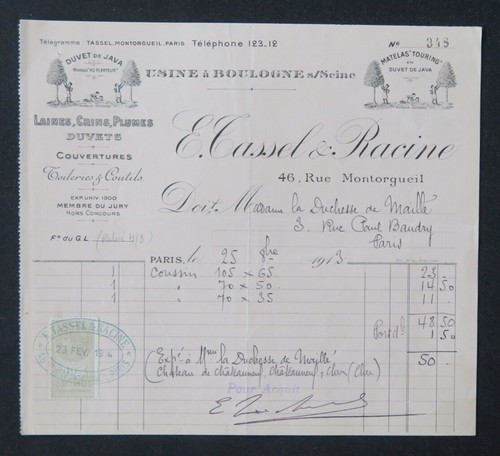 Télégramme: TASSEL, MONTORGUEIL, PARIS Téléphone 123_12
No 348
DUVET DE JAVA
USINE à BOULOGNE s/Seine
MATELAS "TOURING"
EN
DUVET DE JAVA
LAINES, CRINS, PLUMES
DUVETS
COUVERTURES
Toileries & Coutils
EXP. UNIV. 1900
MEMBRE DU JURY
HORS CONCOURS
E. Tassel & Racine
46, Rue Montorgueil
Doit Madame la Duchesse de Maillé
3, Rue Paul Baudry
Paris
Fº du G.L
PARIS, le 25 8bre 1913
1 Coussin 105 x 65 23
1 " 70 x 50 14 50
1 " 70 x 35 11
48 50
Port d 1 50
50
(Expé à Mme la Duchesse de Maylle
Château de Châteauneuf, Châteauneuf s/Cher (Cher)
Pour Acquit
E. TASSEL & RACINE
23 FEV. 191